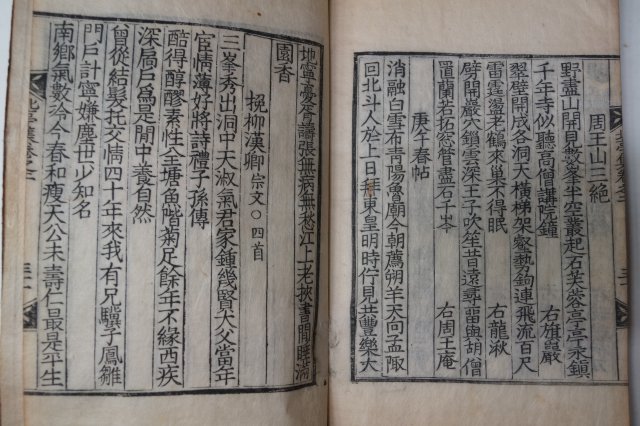 周王山三絶
野盡山開見數峯半空叢起石芙蓉亭亭永鎭
千年寺似聽高僧講院鐘 右旗巖
翠壁開成各洞天橫梯架壑勢鉤連飛流百尺
雷霆盪老鶴來巢不得眠 右龍湫
劈開巖穴鎖雲深王子吹笙昔遠尋留與胡僧
置蘭若 石千岑 右周王庵
庚午春帖
消融白雪布靑陽魯廟今朝薦朔羊天向孟陬
回北斗人於上日拜東皇明時佇見共豐樂大
地寧憂 張無病無愁江上老挾書閒睡滿
園香
挽柳漢卿宗文○四首
三峯秀出洞中天淑氣君家鍾幾賢大父當年
宦情薄好將詩禮子孫傳
酷得醇醪素性全塘魚階菊足餘年不緣西疾
深扃戶爲是閒中養自然
曾從結髮托交情四十年來我有兄驥子鳳雛
門戶計寧嫌塵世少知名
南鄕氣數 今春和瘦天公未壽仁最是平生